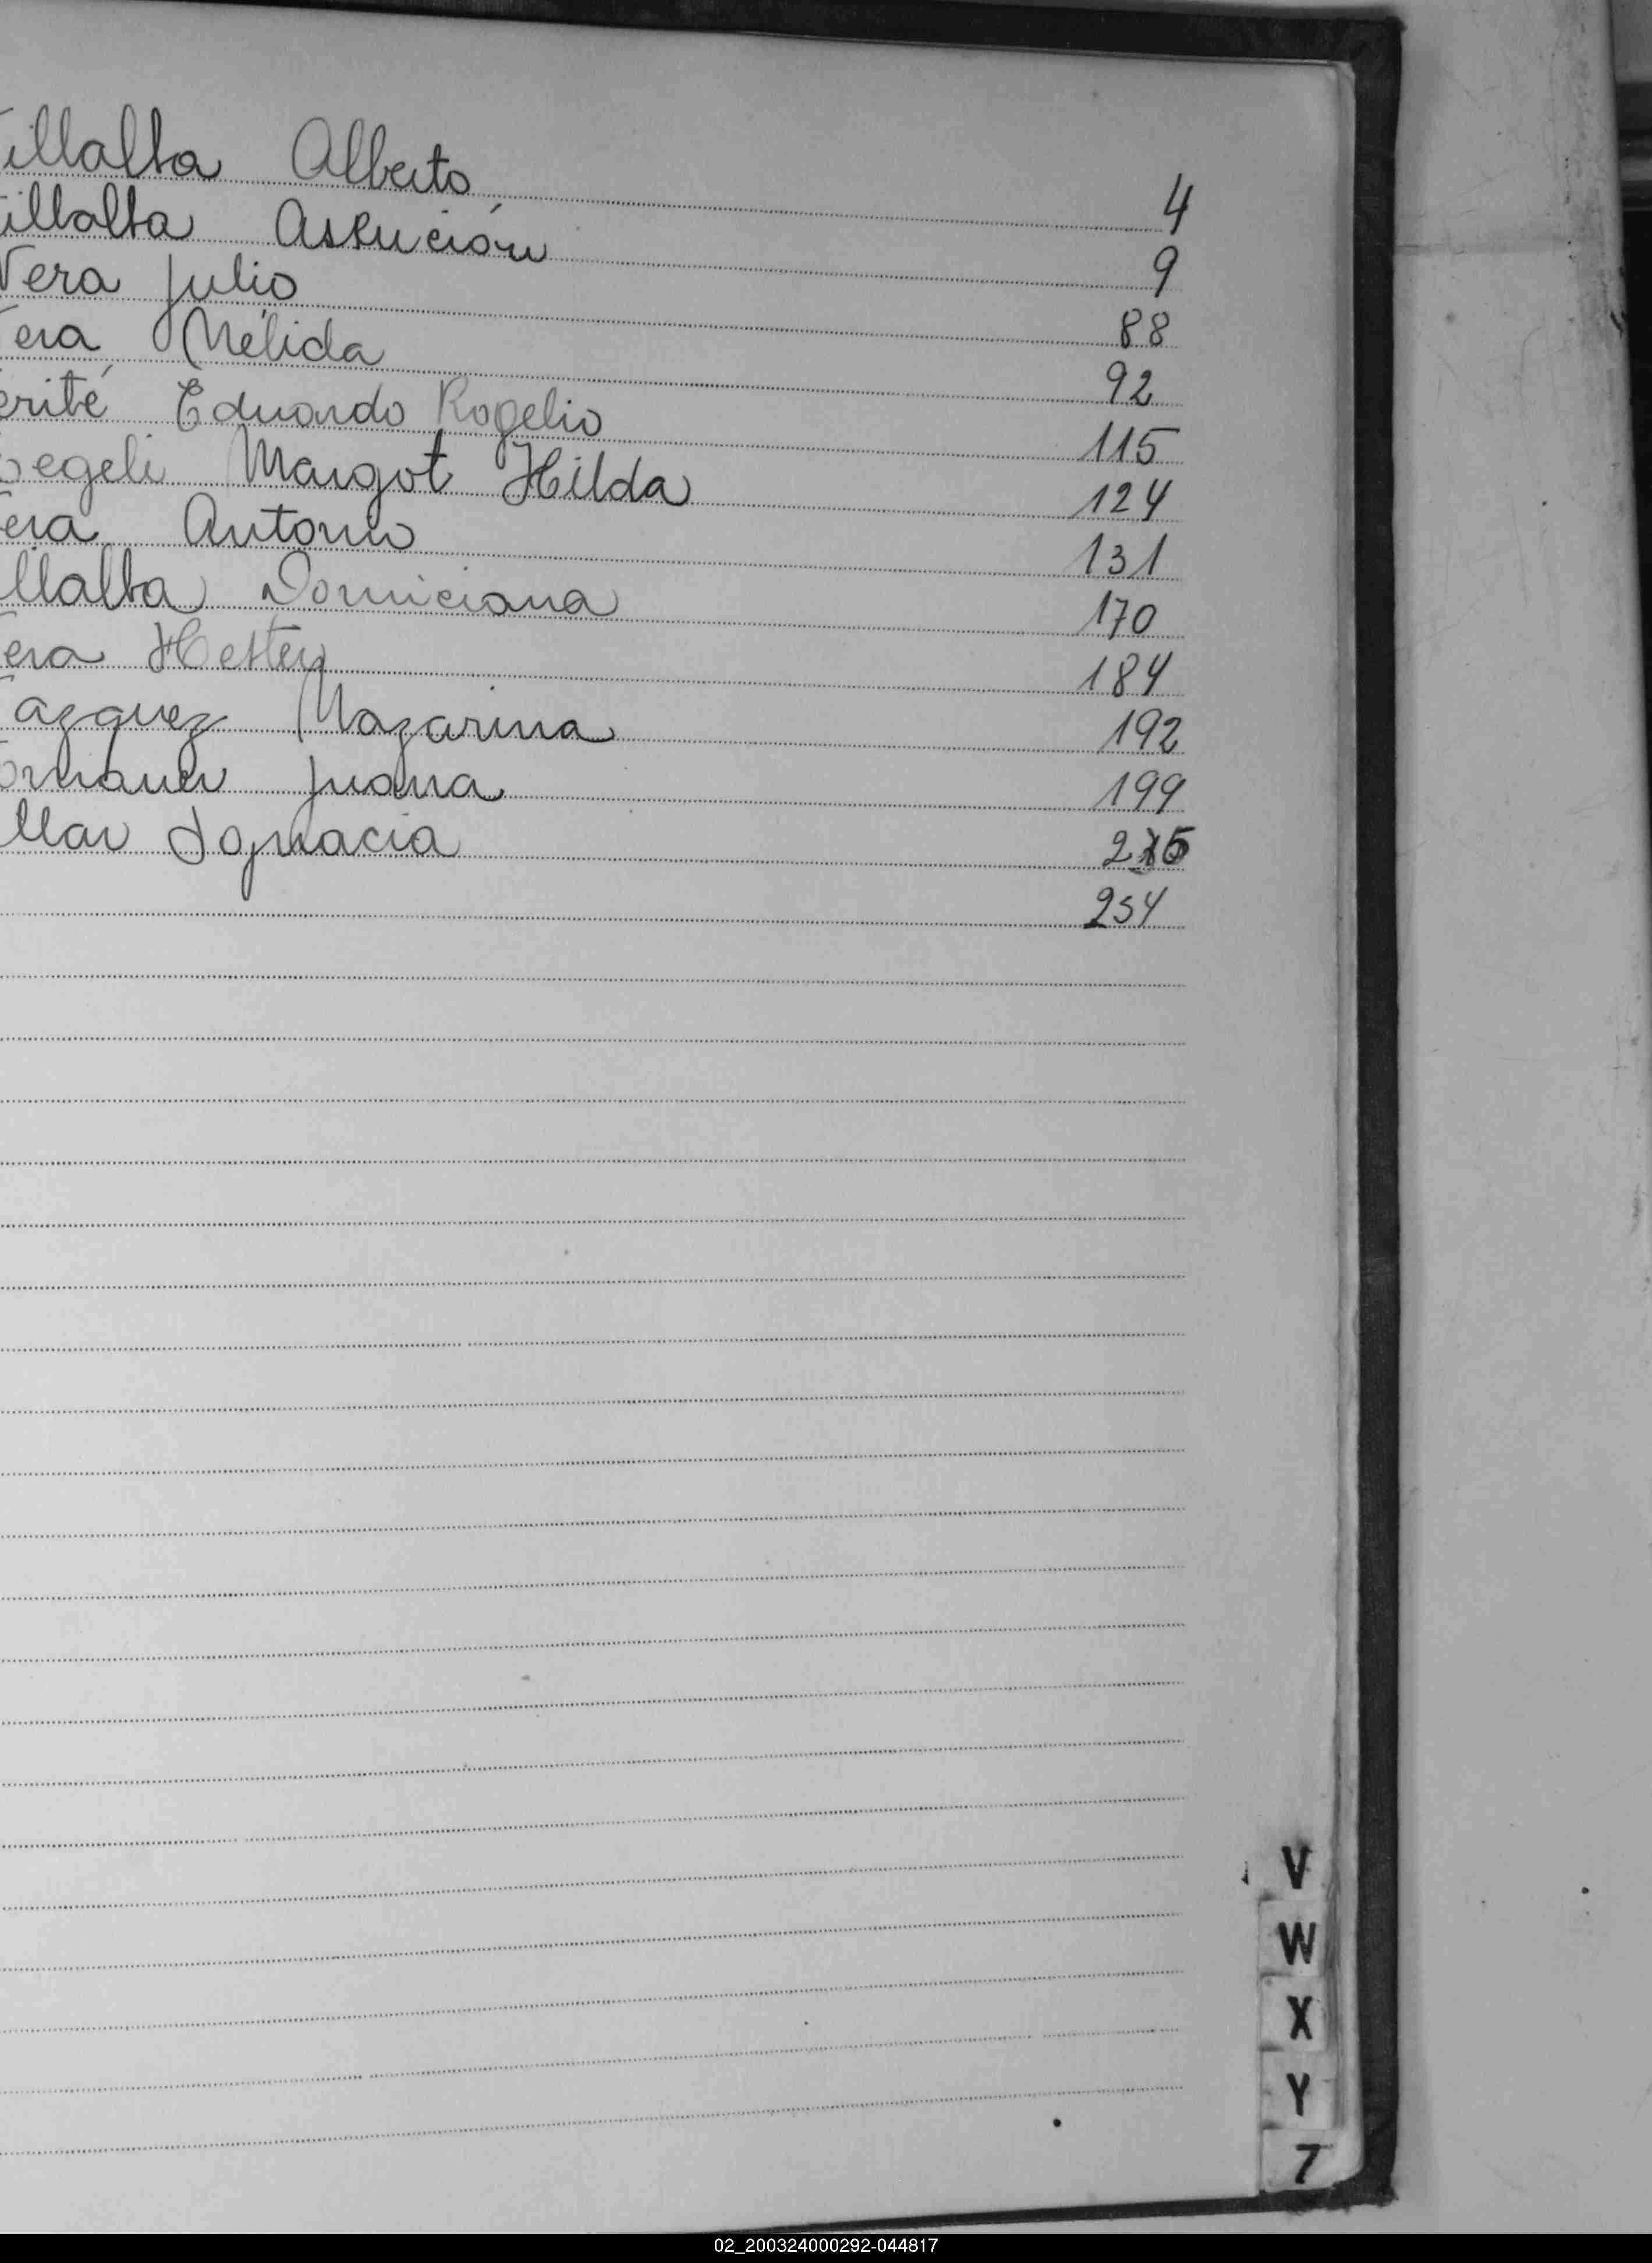 illalba Alberto 4
illalba Asunción 9
Vera Julio 88
era Mélida 92
erité Eduardo Rogelio 115
oegeli Margot Hilda 124
era Antonio 131
llalba Domiciana 170
era Hester 184
azquez Nazarina 192
ormann Juana 199
llar Ignacia
254
V
W
X
Y
Z
02_200324000292-044817